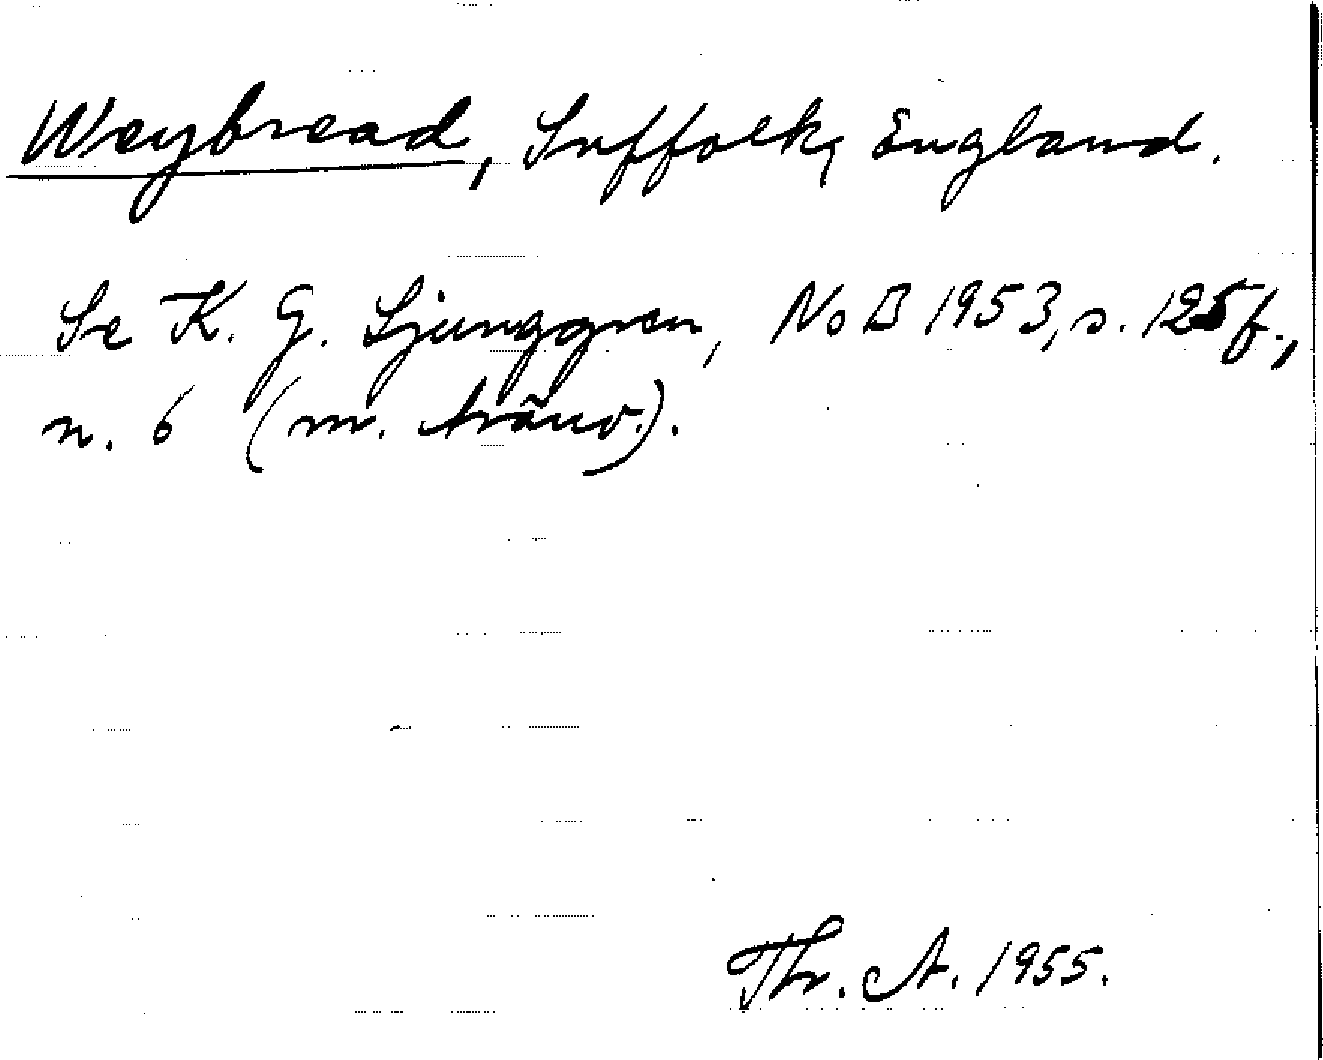 Weybread, Suffolk, England.
Se K. G. Ljunggren, NoB 1953, s. 125 f.,
n. 6 (m. hänv.).
Thr. A. 1955.